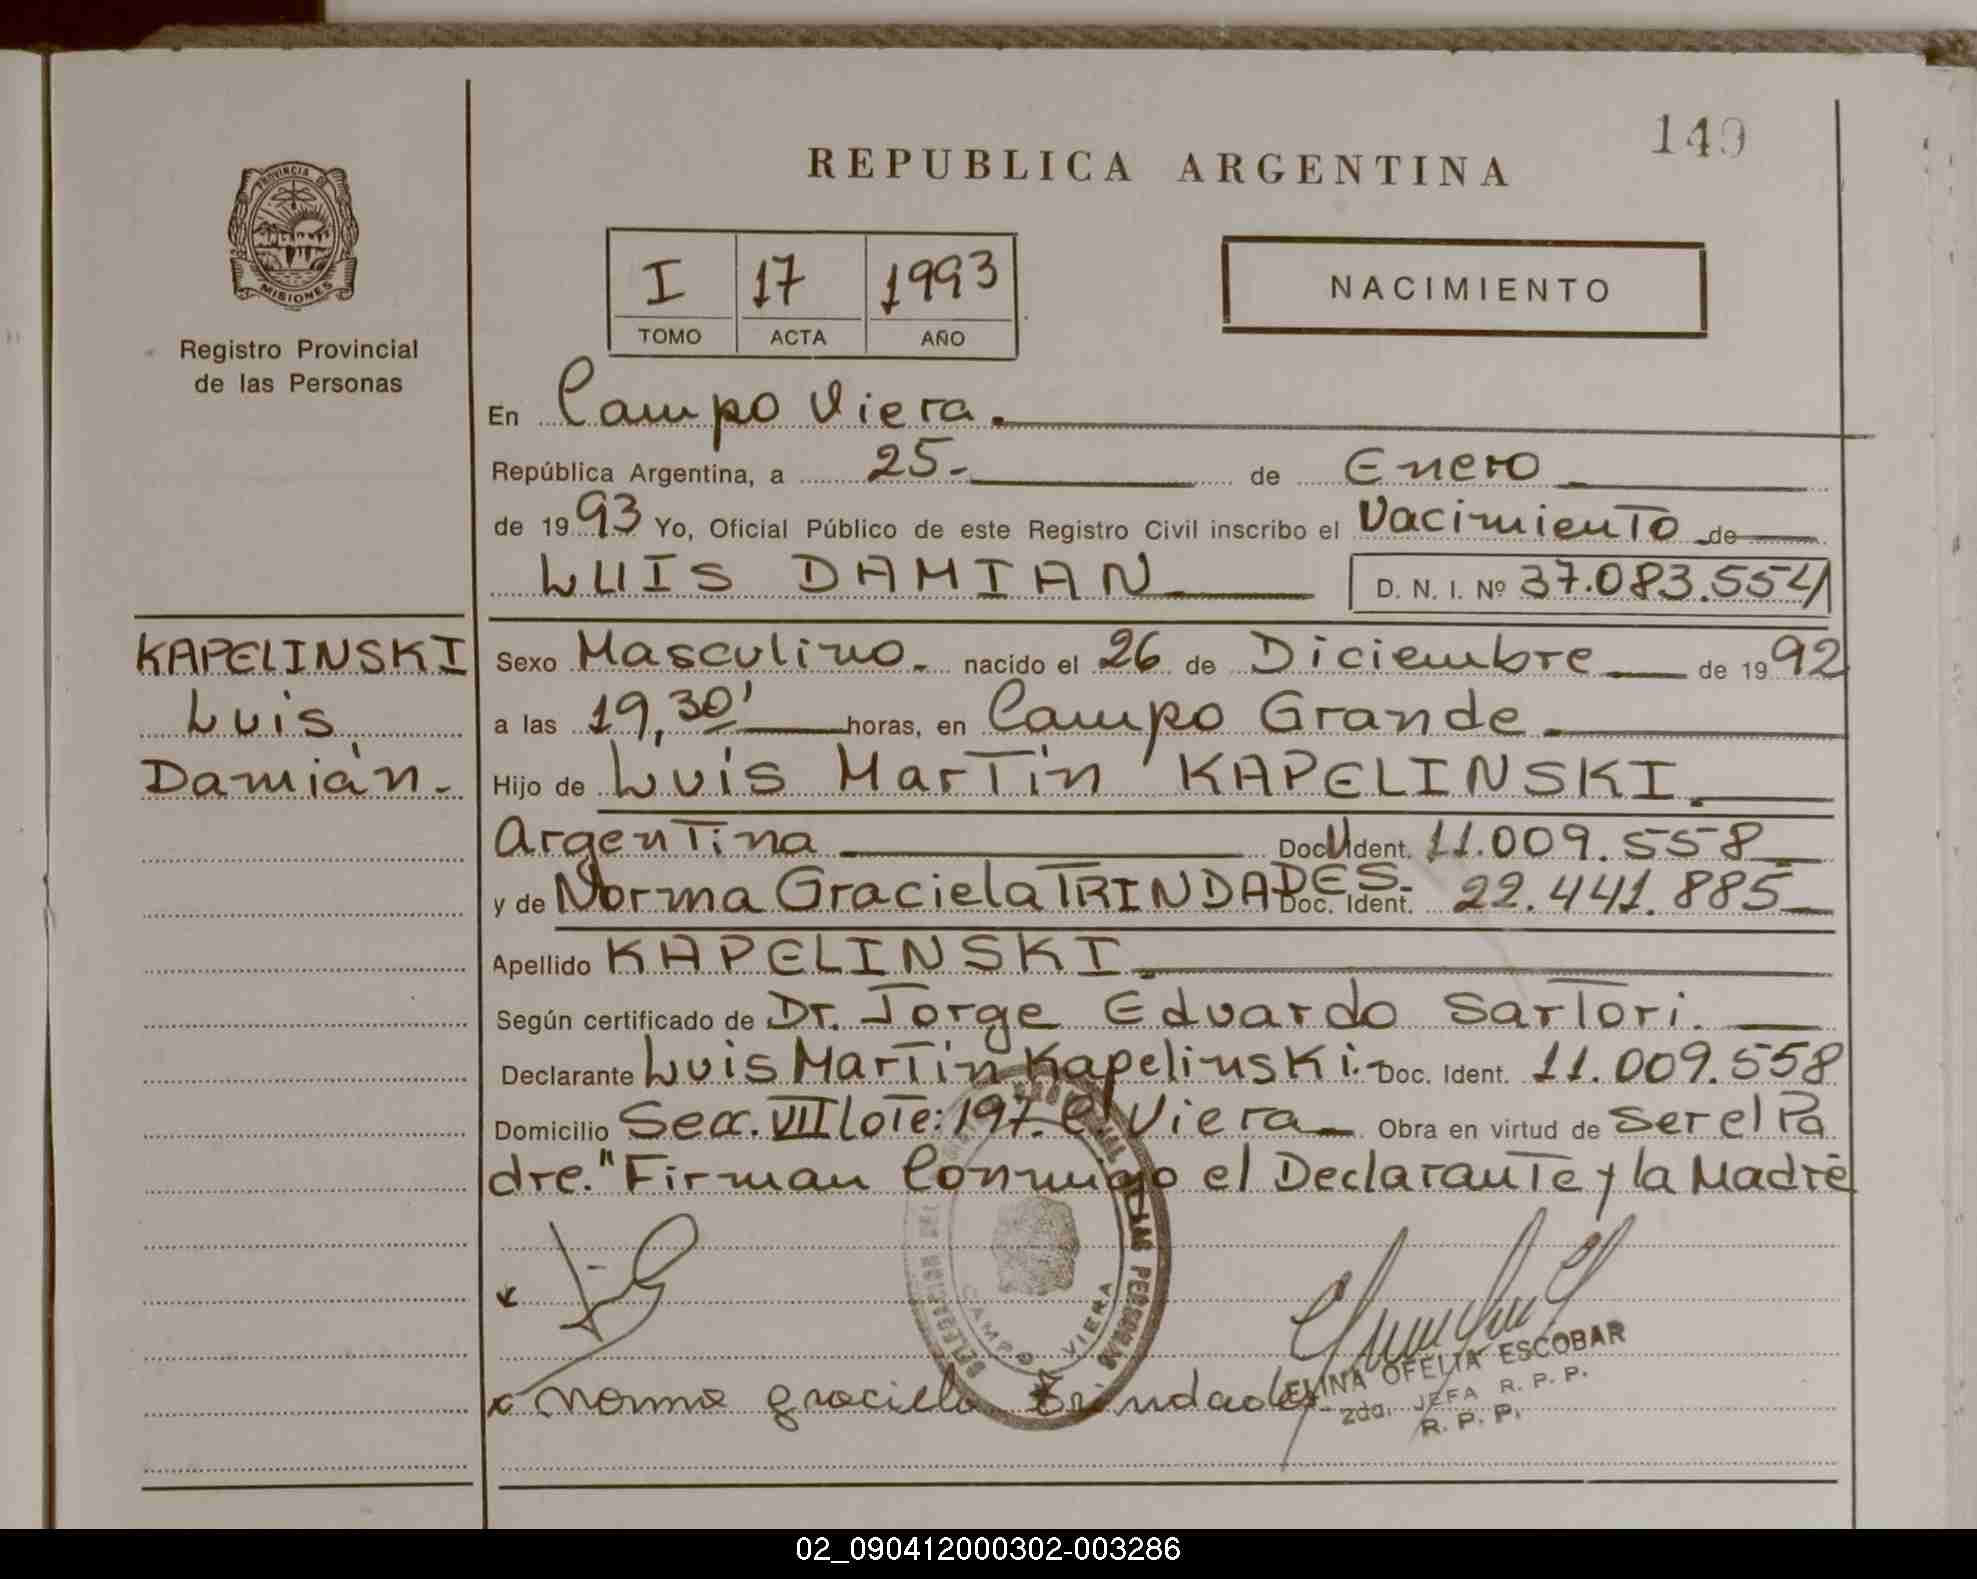 149
REPUBLICA ARGENTINA
PROVINCIA DE
MISIONES
Registro Provincial
de las Personas
I 17 1993
TOMO ACTA AÑO
NACIMIENTO
En Campo Viera.
República Argentina, a 25- de Enero
de 1993 Yo, Oficial Público de este Registro Civil inscribo el Nacimiento de
LUIS DAMIAN D. N. I. Nº 37.083.554
KAPELINSKI
Luis
Damián.-
Sexo Masculino. nacido el 26 de Diciembre de 1992
a las 19,30' horas, en Campo Grande.
Hijo de Luis Martín KAPELINSKI.
Argentina Doc. Ident. 11.009.558
y de Norma Graciela TRINDADES. Doc. Ident. 22.441.885
Apellido KAPELINSKI.
Según certificado de Dr. Jorge Eduardo Sartori.
Declarante Luis Martín Kapelinski.- Doc. Ident. 11.009.558
Domicilio Secc. VII lote: 197. C. Viera Obra en virtud de ser el Pa
dre." Firman Conmigo el Declarante y la Madre
DELEGACION DEL LAS PERSONAS
CAMPO VIERA
norma graciela Trindade
ELINA OFELIA ESCOBAR
2da. JEFA R. P. P.
R. P. P.
02_090412000302-003286